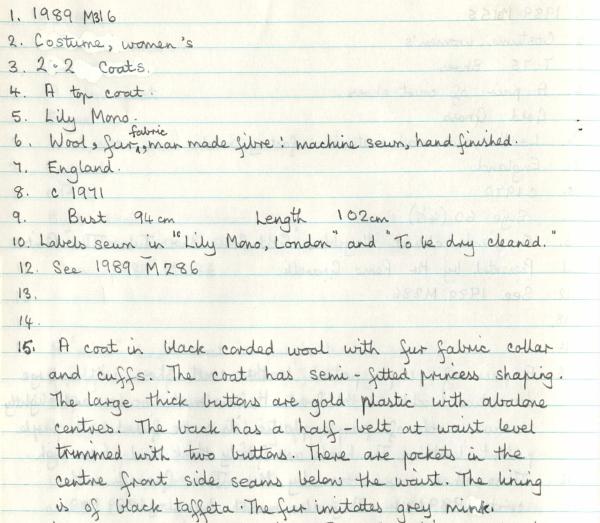 1. 1989 M316
2. Costume, women's
3. 2.2 Coats.
4. A top coat.
5. Lily Mono.
6. Wool, fur fabric, man made fibre: machine sewn, hand finished.
7. England.
8. c 1971
9. Bust 94cm Length 102cm
10. Labels sewn in "Lily Mono, London" and "To be dry cleaned."
12. See 1989 M286
13.
14.
15. A coat in black corded wool with fur fabric collar
and cuffs. The coat has semi-fitted princess shaping.
The large thick buttons are gold plastic with abalone
centres. The back has a half-belt at waist level
trimmed with two buttons. There are pockets in the
centre front side seams below the waist. The lining
is of black taffeta. The fur imitates grey mink.